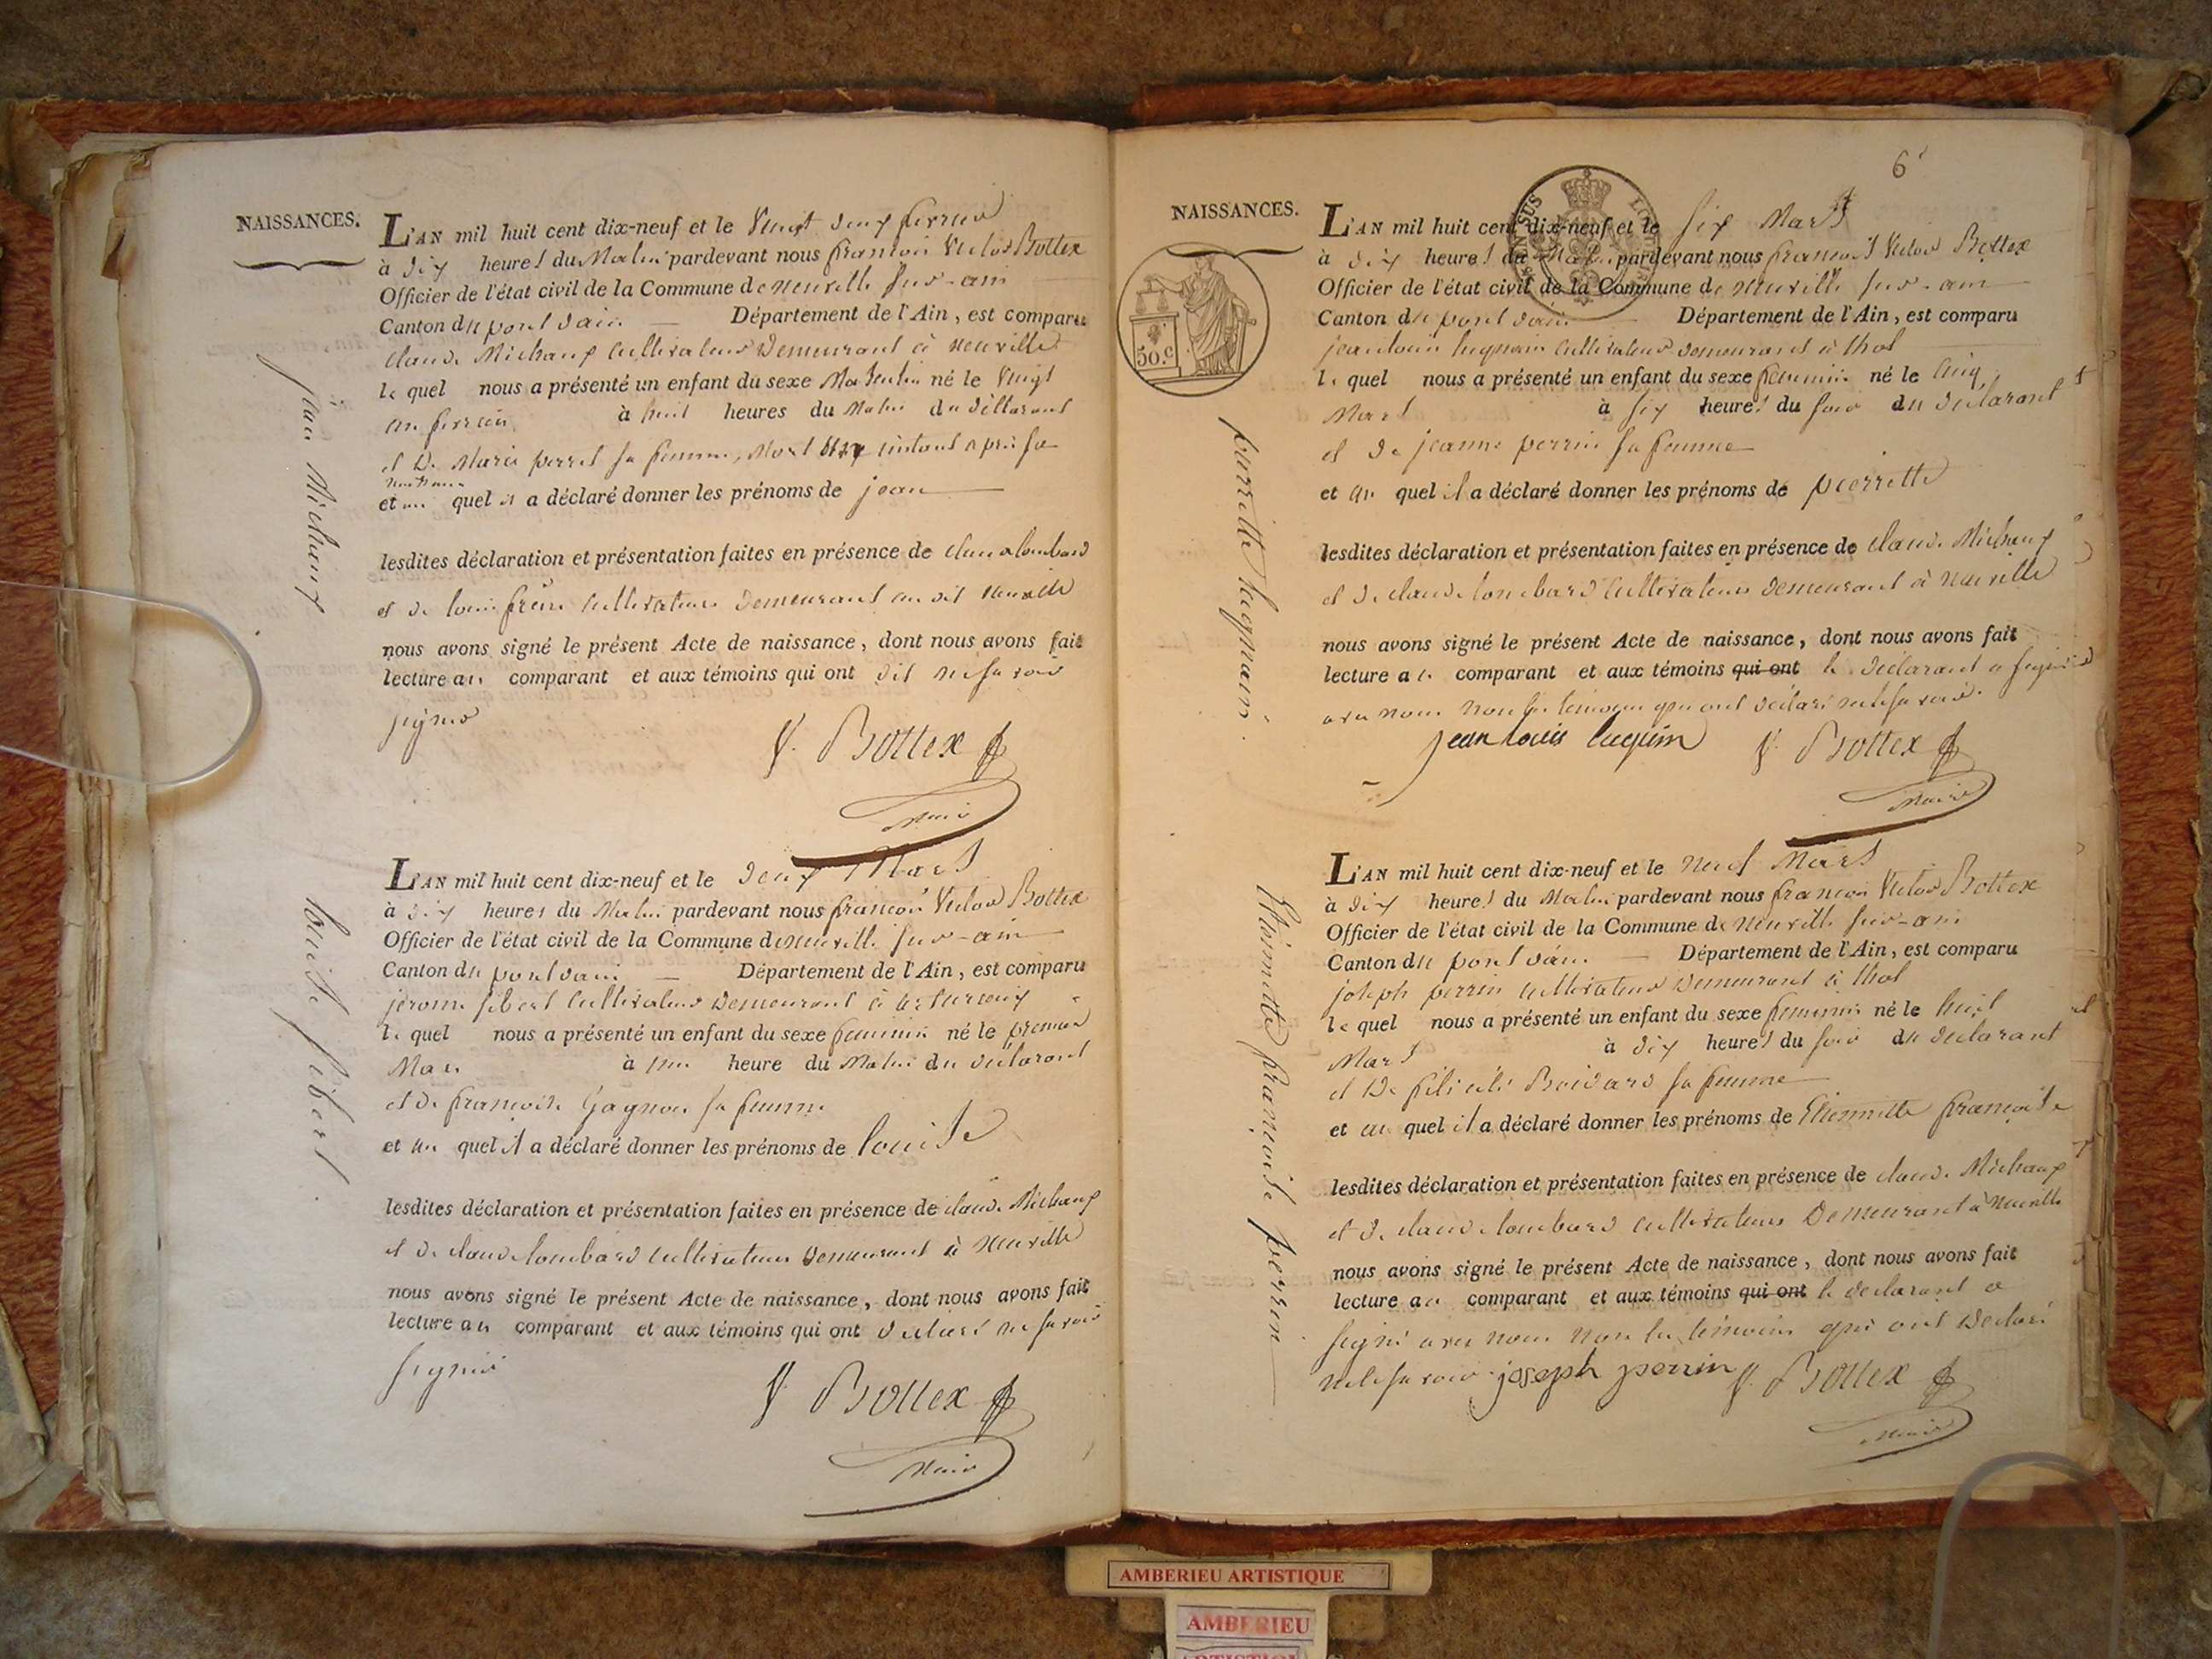 NAISSANCES.
L'AN mil huit cent dix-neuf et le Vingt deux fevrier
à dix heures du Matin pardevant nous françois Victor Bottex
Officier de l'état civil de la Commune de neuville sur-ain
Canton du pont dain Département de l'Ain, est comparu
claude Michaux Cultivateur Demeurant à neuville
le quel nous a présenté un enfant du sexe Masculin né le Vingt
un fevrier à huit heures du Matin du déclarant
et De Marie perret sa femme, Mort instant après sa
naissance
et au quel il a déclaré donner les prénoms de jean
lesdites déclaration et présentation faites en présence de claude lombard
et de louis frere Cultivateurs Demeurant au dit neuville
nous avons signé le présent Acte de naissance, dont nous avons fait
lecture au comparant et aux témoins qui ont dit ne savoir
signer
V. Bottex
Maire
jean Michaux
L'AN mil huit cent dix-neuf et le deux Mars
à dix heures du Matin pardevant nous françois Victor Bottex
Officier de l'état civil de la Commune de neuville sur-ain
Canton du pont dain Département de l'Ain, est comparu
jerome sibert Cultivateur Demeurant à
le quel nous a présenté un enfant du sexe feminin né le premier
Mars à une heure du Matin du déclarant
et de françoise Gagnon sa femme
et au quel il a déclaré donner les prénoms de louise
lesdites déclaration et présentation faites en présence de claude Michaux
et de claude lombard Cultivateurs Demeurant à neuville
nous avons signé le présent Acte de naissance, dont nous avons fait
lecture au comparant et aux témoins qui ont déclaré ne savoir
signer
V. Bottex
Maire
louise sibert.
6
NAISSANCES.
50.c
L'AN mil huit cent dix-neuf et le six Mars
à dix heures du Matin pardevant nous françois Victor Bottex
Officier de l'état civil de la Commune de neuville sur-ain
Canton du pont dain Département de l'Ain, est comparu
jean louis lugnin Cultivateur demeurant à thol
le quel nous a présenté un enfant du sexe feminin né le Cinq
Mars à six heures du soir du déclarant
et de jeanne perrin sa femme
et au quel il a déclaré donner les prénoms de pierrette
lesdites déclaration et présentation faites en présence de claude Michaux
et de claude lombard Cultivateurs demeurant à neuville
nous avons signé le présent Acte de naissance, dont nous avons fait
lecture au comparant et aux témoins qui ont le déclarant a signé
avec nous non les temoins qui ont déclaré ne le savoir.
jean louis lugnin V. Bottex
Maire
pierrette
L'AN mil huit cent dix-neuf et le neuf Mars
à dix heures du Matin pardevant nous françois Victor Bottex
Officier de l'état civil de la Commune de neuville sur-ain
Canton du pont dain. Département de l'Ain, est comparu
joseph perrin Cultivateur Demeurant à thol
le quel nous a présenté un enfant du sexe feminin né le huit
Mars à dix heures du soir du déclarant
et De felicité Boivard sa femme
et au quel il a déclaré donner les prénoms de Etiennette françoise
lesdites déclaration et présentation faites en présence de claude Michaux
et de claude lombard Cultivateurs Demeurant à neuville
nous avons signé le présent Acte de naissance, dont nous avons fait
lecture au comparant et aux témoins qui ont le déclarant a
signé avec nous non les témoins qui ont déclaré
ne le savoir. joseph perrin V. Bottex
Maire
Etiennette françoise perrin
AMBERIEU ARTISTIQUE
AMBERIEU
ARTISTIQUE